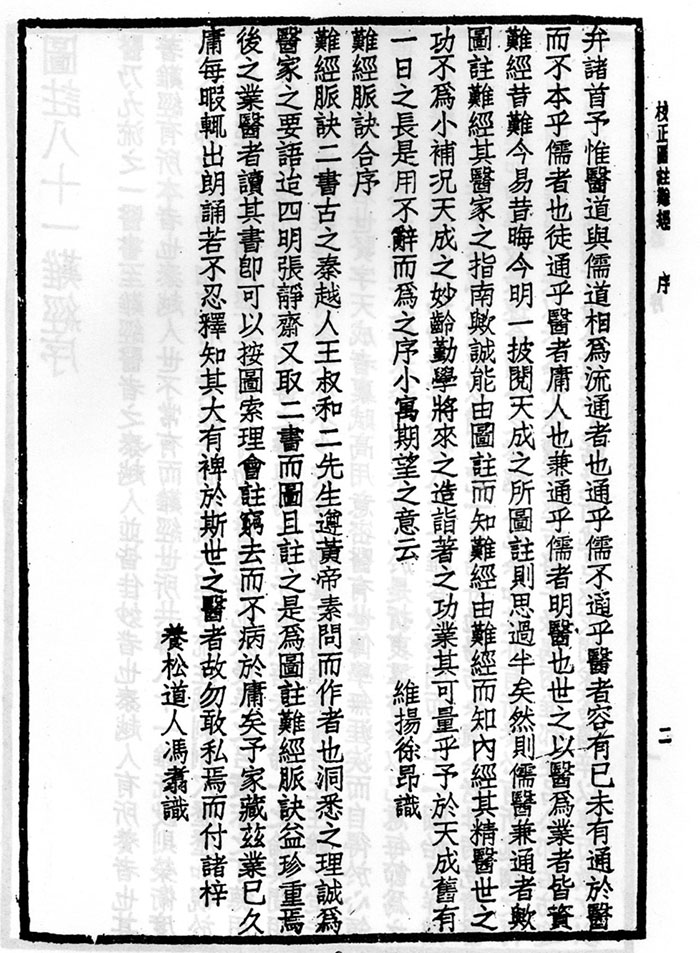 校正圖註難經 序 二
弁諸首予惟醫道與儒道相爲流通者也通乎儒不通乎醫者容有已未有通於醫
而不本乎儒者也徒通乎醫者庸人也兼通乎儒者明醫也世之以醫爲業者皆資
難經昔難今易昔晦今明一披閱天成之所圖註則思過半矣然則儒醫兼通者歟
圖註難經其醫家之指南歟誠能由圖註而知難經由難經而知內經其精醫世之
功不爲小補況天成之妙齡勤學將來之造詣著之功業其可量乎予於天成舊有
一日之長是用不辭而爲之序小寓期望之意云 維揚徐昂識
難經脈訣合序
難經脈訣二書古之秦越人王叔和二先生遵黃帝素問而作者也洞悉之理誠爲
醫家之要語迨四明張靜齋又取二書而圖且註之是爲圖註難經脈訣益珍重焉
後之業醫者讀其書卽可以按圖索理會註窮去而不病於庸矣予家藏茲業已久
庸每暇輒出朗誦若不忍釋知其大有裨於斯世之醫者故勿敢私焉而付諸梓
養松道人馮翥識